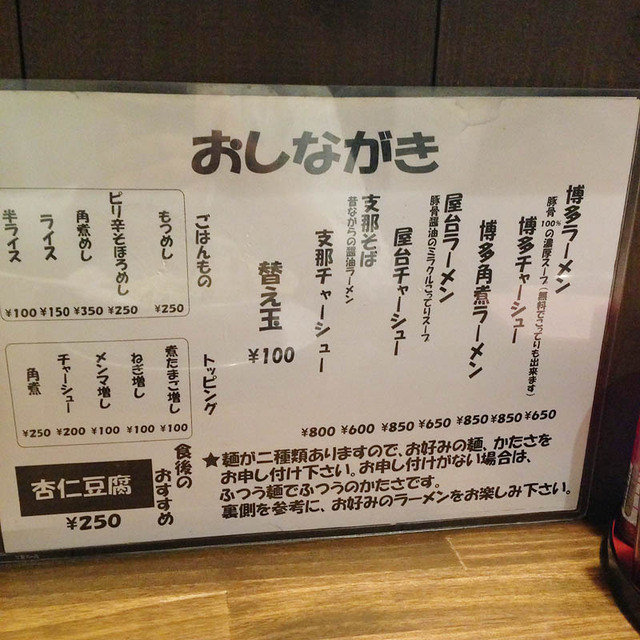 おしながき
博多ラーメン ¥650
豚骨100%の濃厚スープ(無料でこってりも出来ます)
博多チャーシュー ¥850
博多角煮ラーメン ¥850
屋台ラーメン ¥650
豚骨醤油のミラクルこってりスープ
屋台チャーシュー ¥850
支那そば ¥600
昔ながらの醤油ラーメン
支那チャーシュー ¥800
替え玉 ¥100
ごはんもの
もつめし ¥250
ピリ辛そぼろめし ¥250
角煮めし ¥350
ライス ¥150
半ライス ¥100
トッピング
煮たまご増し ¥100
ねぎ増し ¥100
メンマ増し ¥100
チャーシュー ¥200
角煮 ¥250
食後のおすすめ
杏仁豆腐
¥250
★麺が二種類ありますので、お好みの麺、かたさを
お申し付け下さい。お申し付けがない場合は、
ふつう麺でふつうのかたさです。
裏側を参考に、お好みのラーメンをお楽しみ下さい。